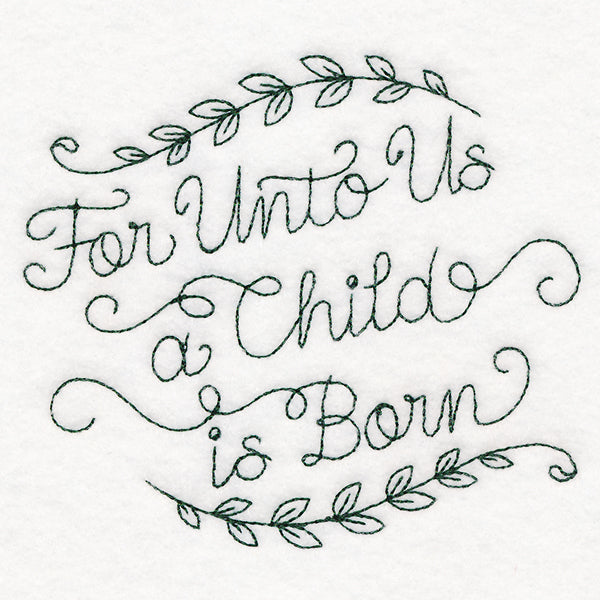 For Unto Us
a Child
is Born